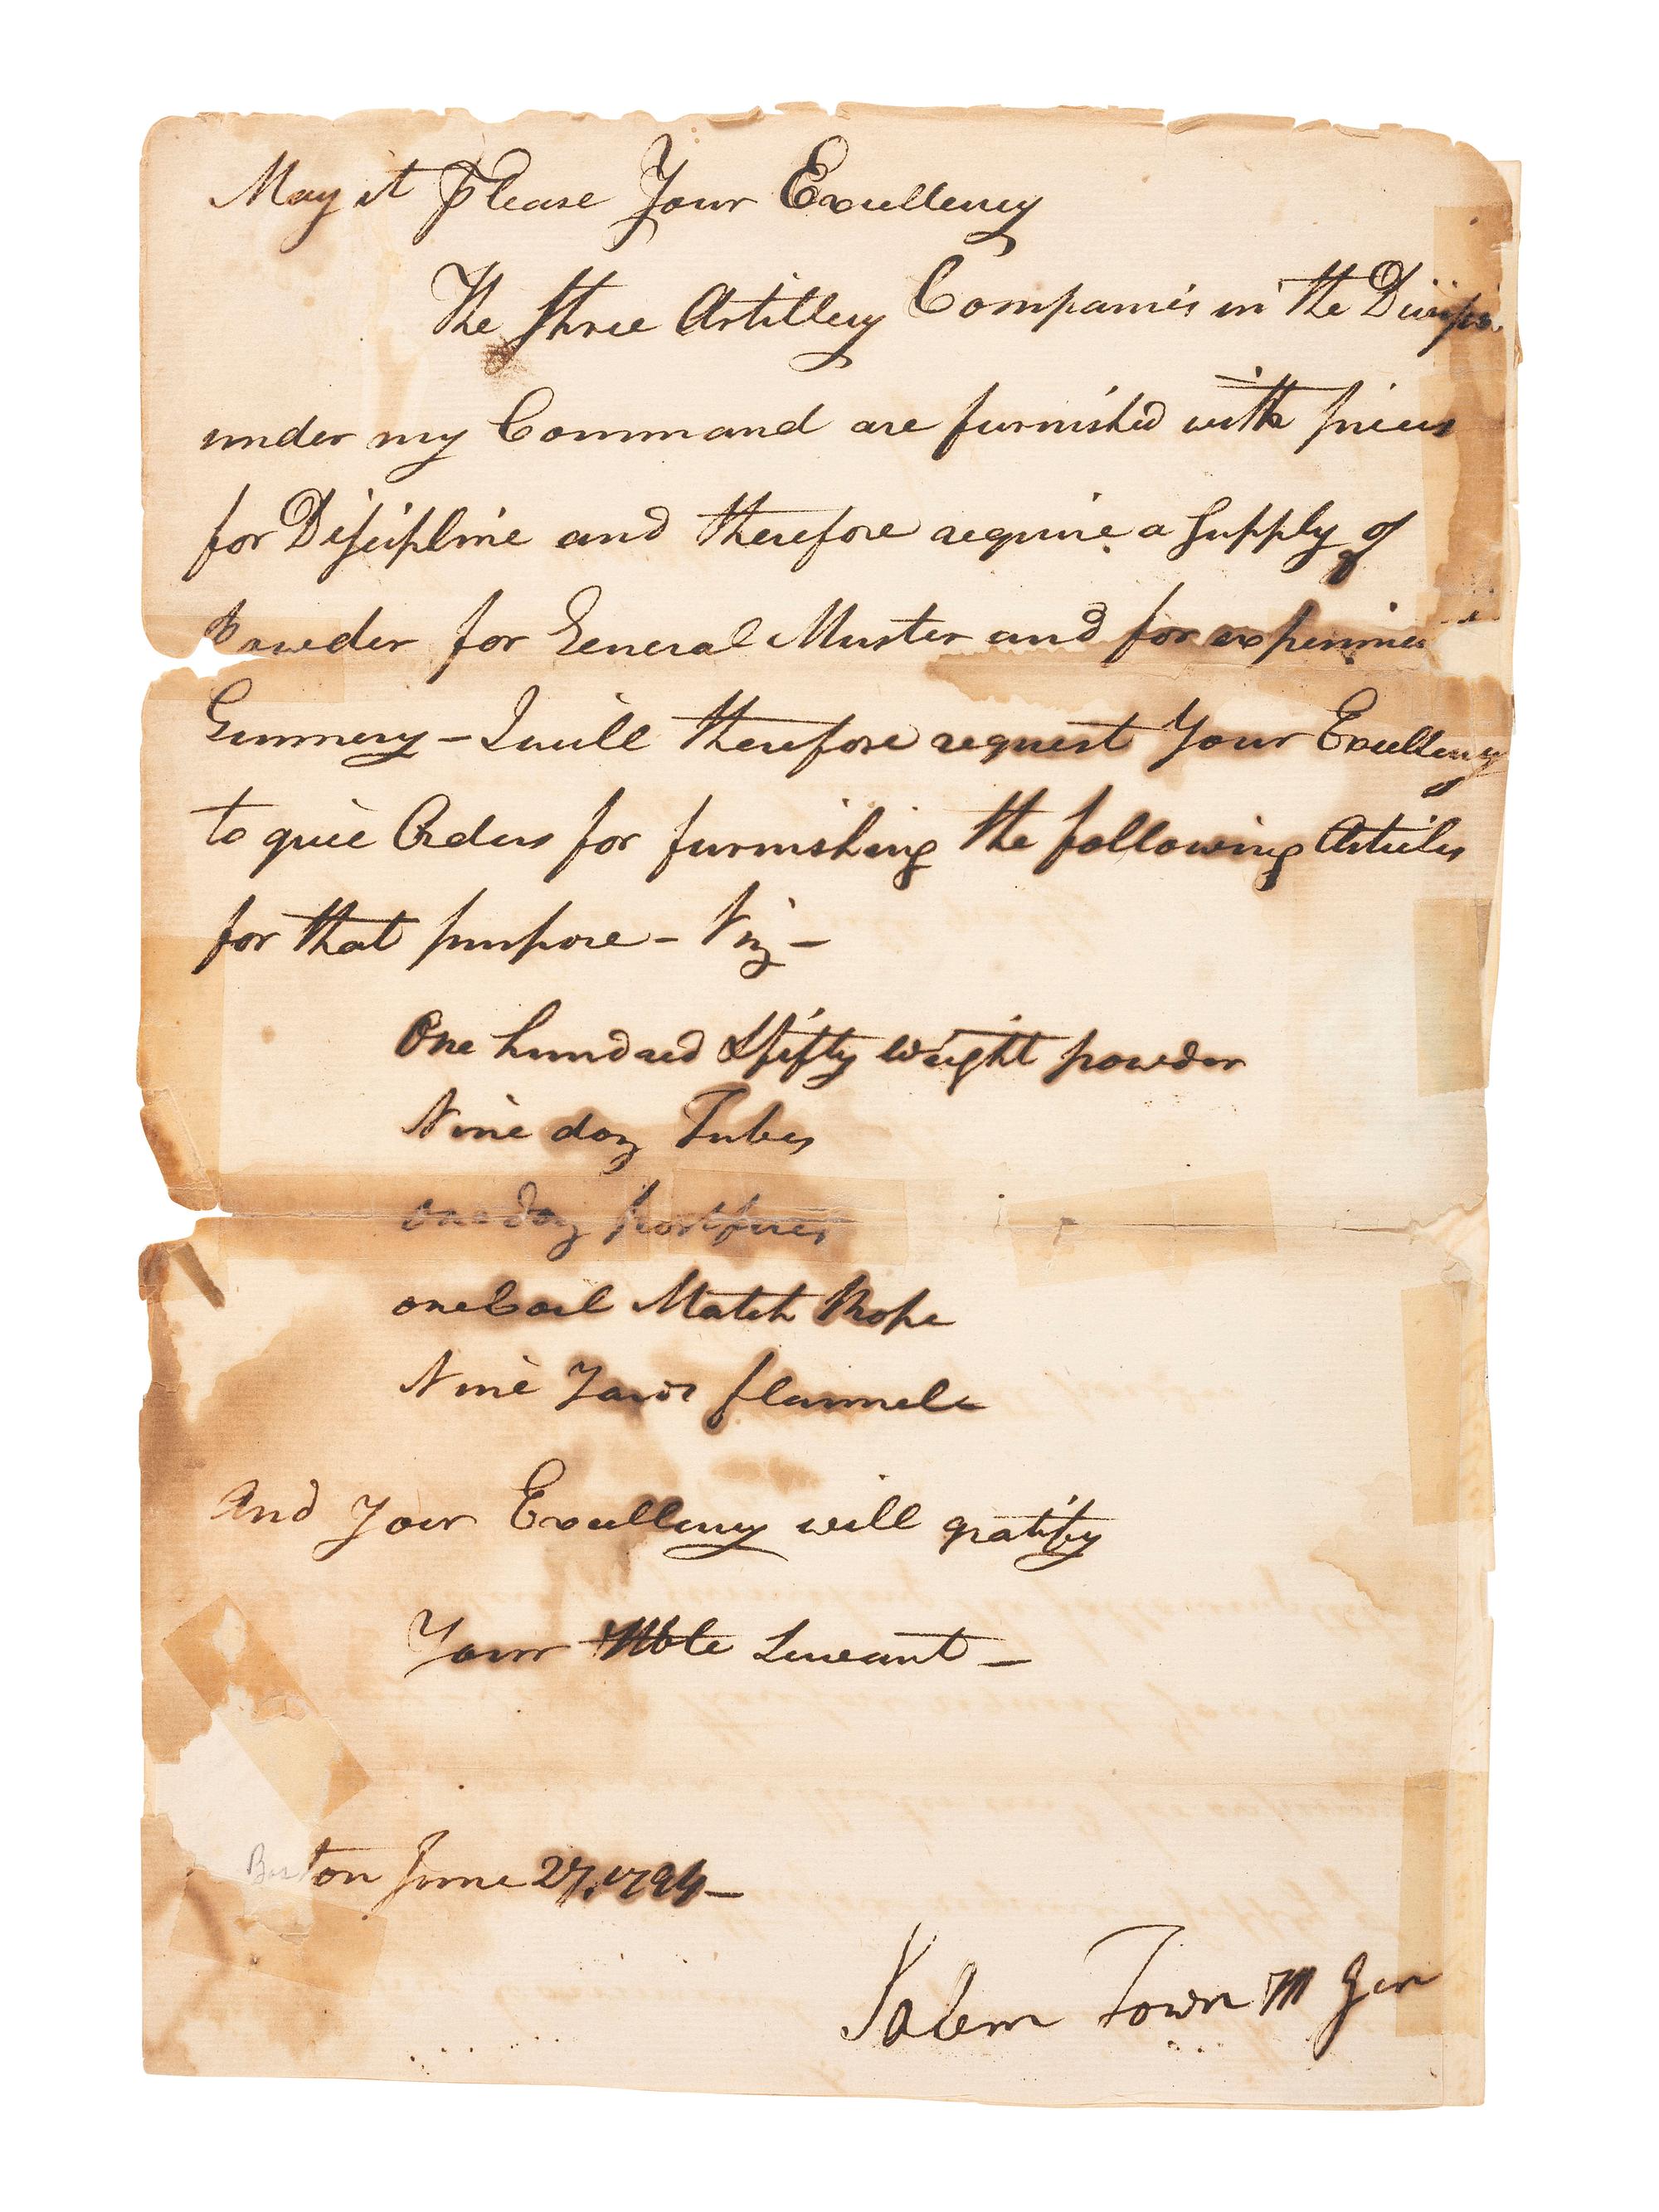 May it Please Your Excellency
The three Artillery Companies in the Divisio
under my Command are furnished with pieces
for Discipline and therefore require a Supply of
Powder for General Muster and for experimen
Gunnery – I will therefore request Your Excellency
to give Orders for furnishing the following Articles
for that purpose – Viz –
One hundred & fifty weight powder
Nine doz Tubes
one doz portfires
one Coil Match Rope
Nine Yards flannel
And Your Excellency will gratify
Your Hble Servant –
Boston June 27, 1794 –
Salem Town M Gen